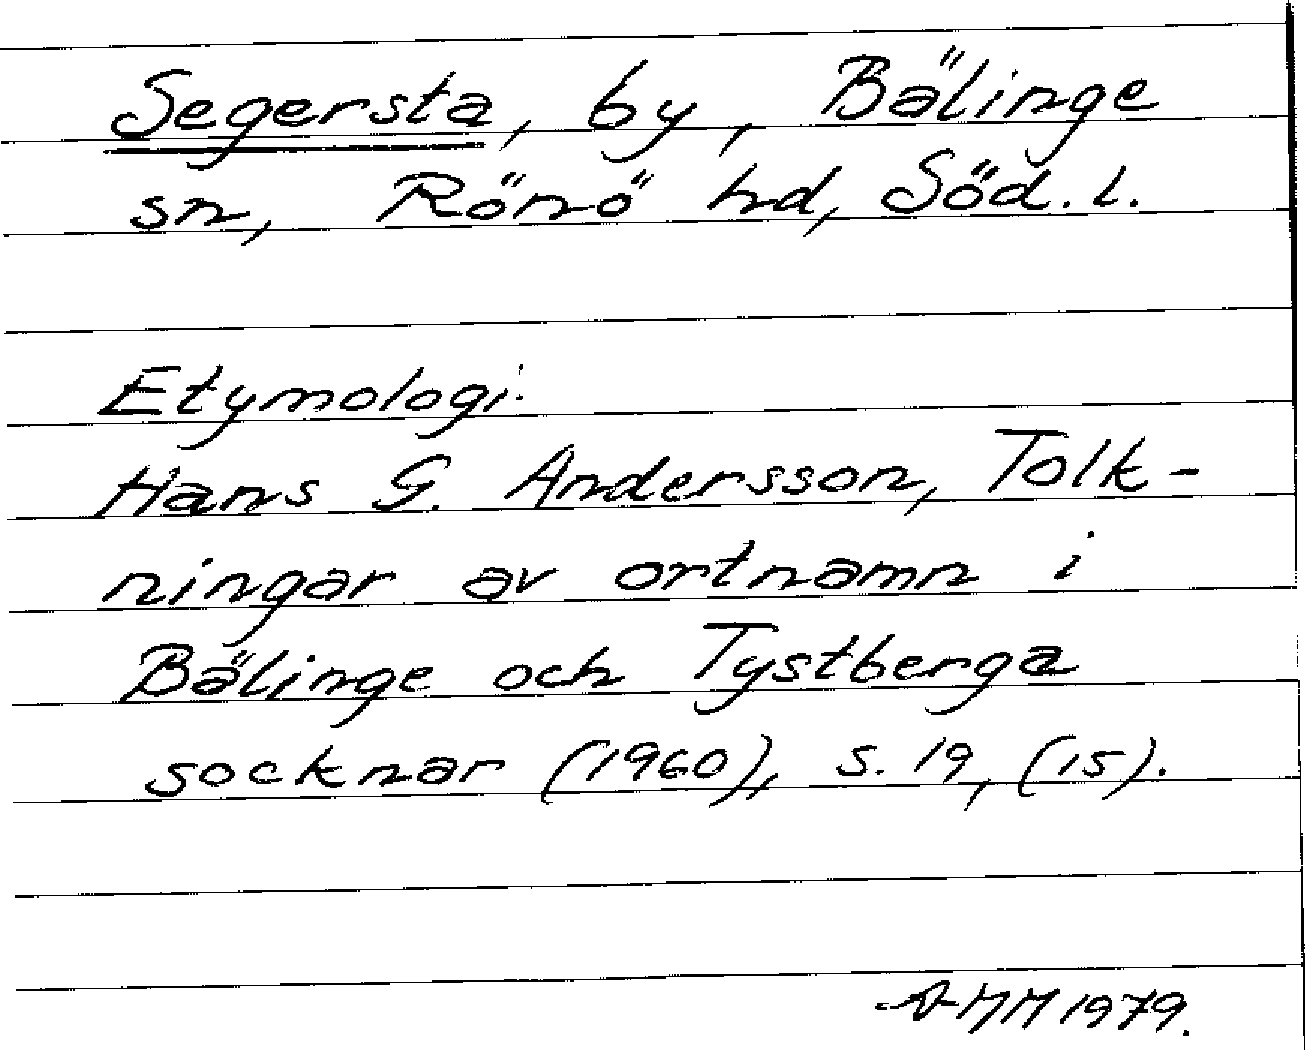 Segersta, by, Bälinge
sn, Rönö hd, Söd. l.
Etymologi:
Hans G. Andersson, Tolk-
ningar av ortnamn i
Bälinge och Tystberga
socknar (1960), s. 19, (15).
1979.